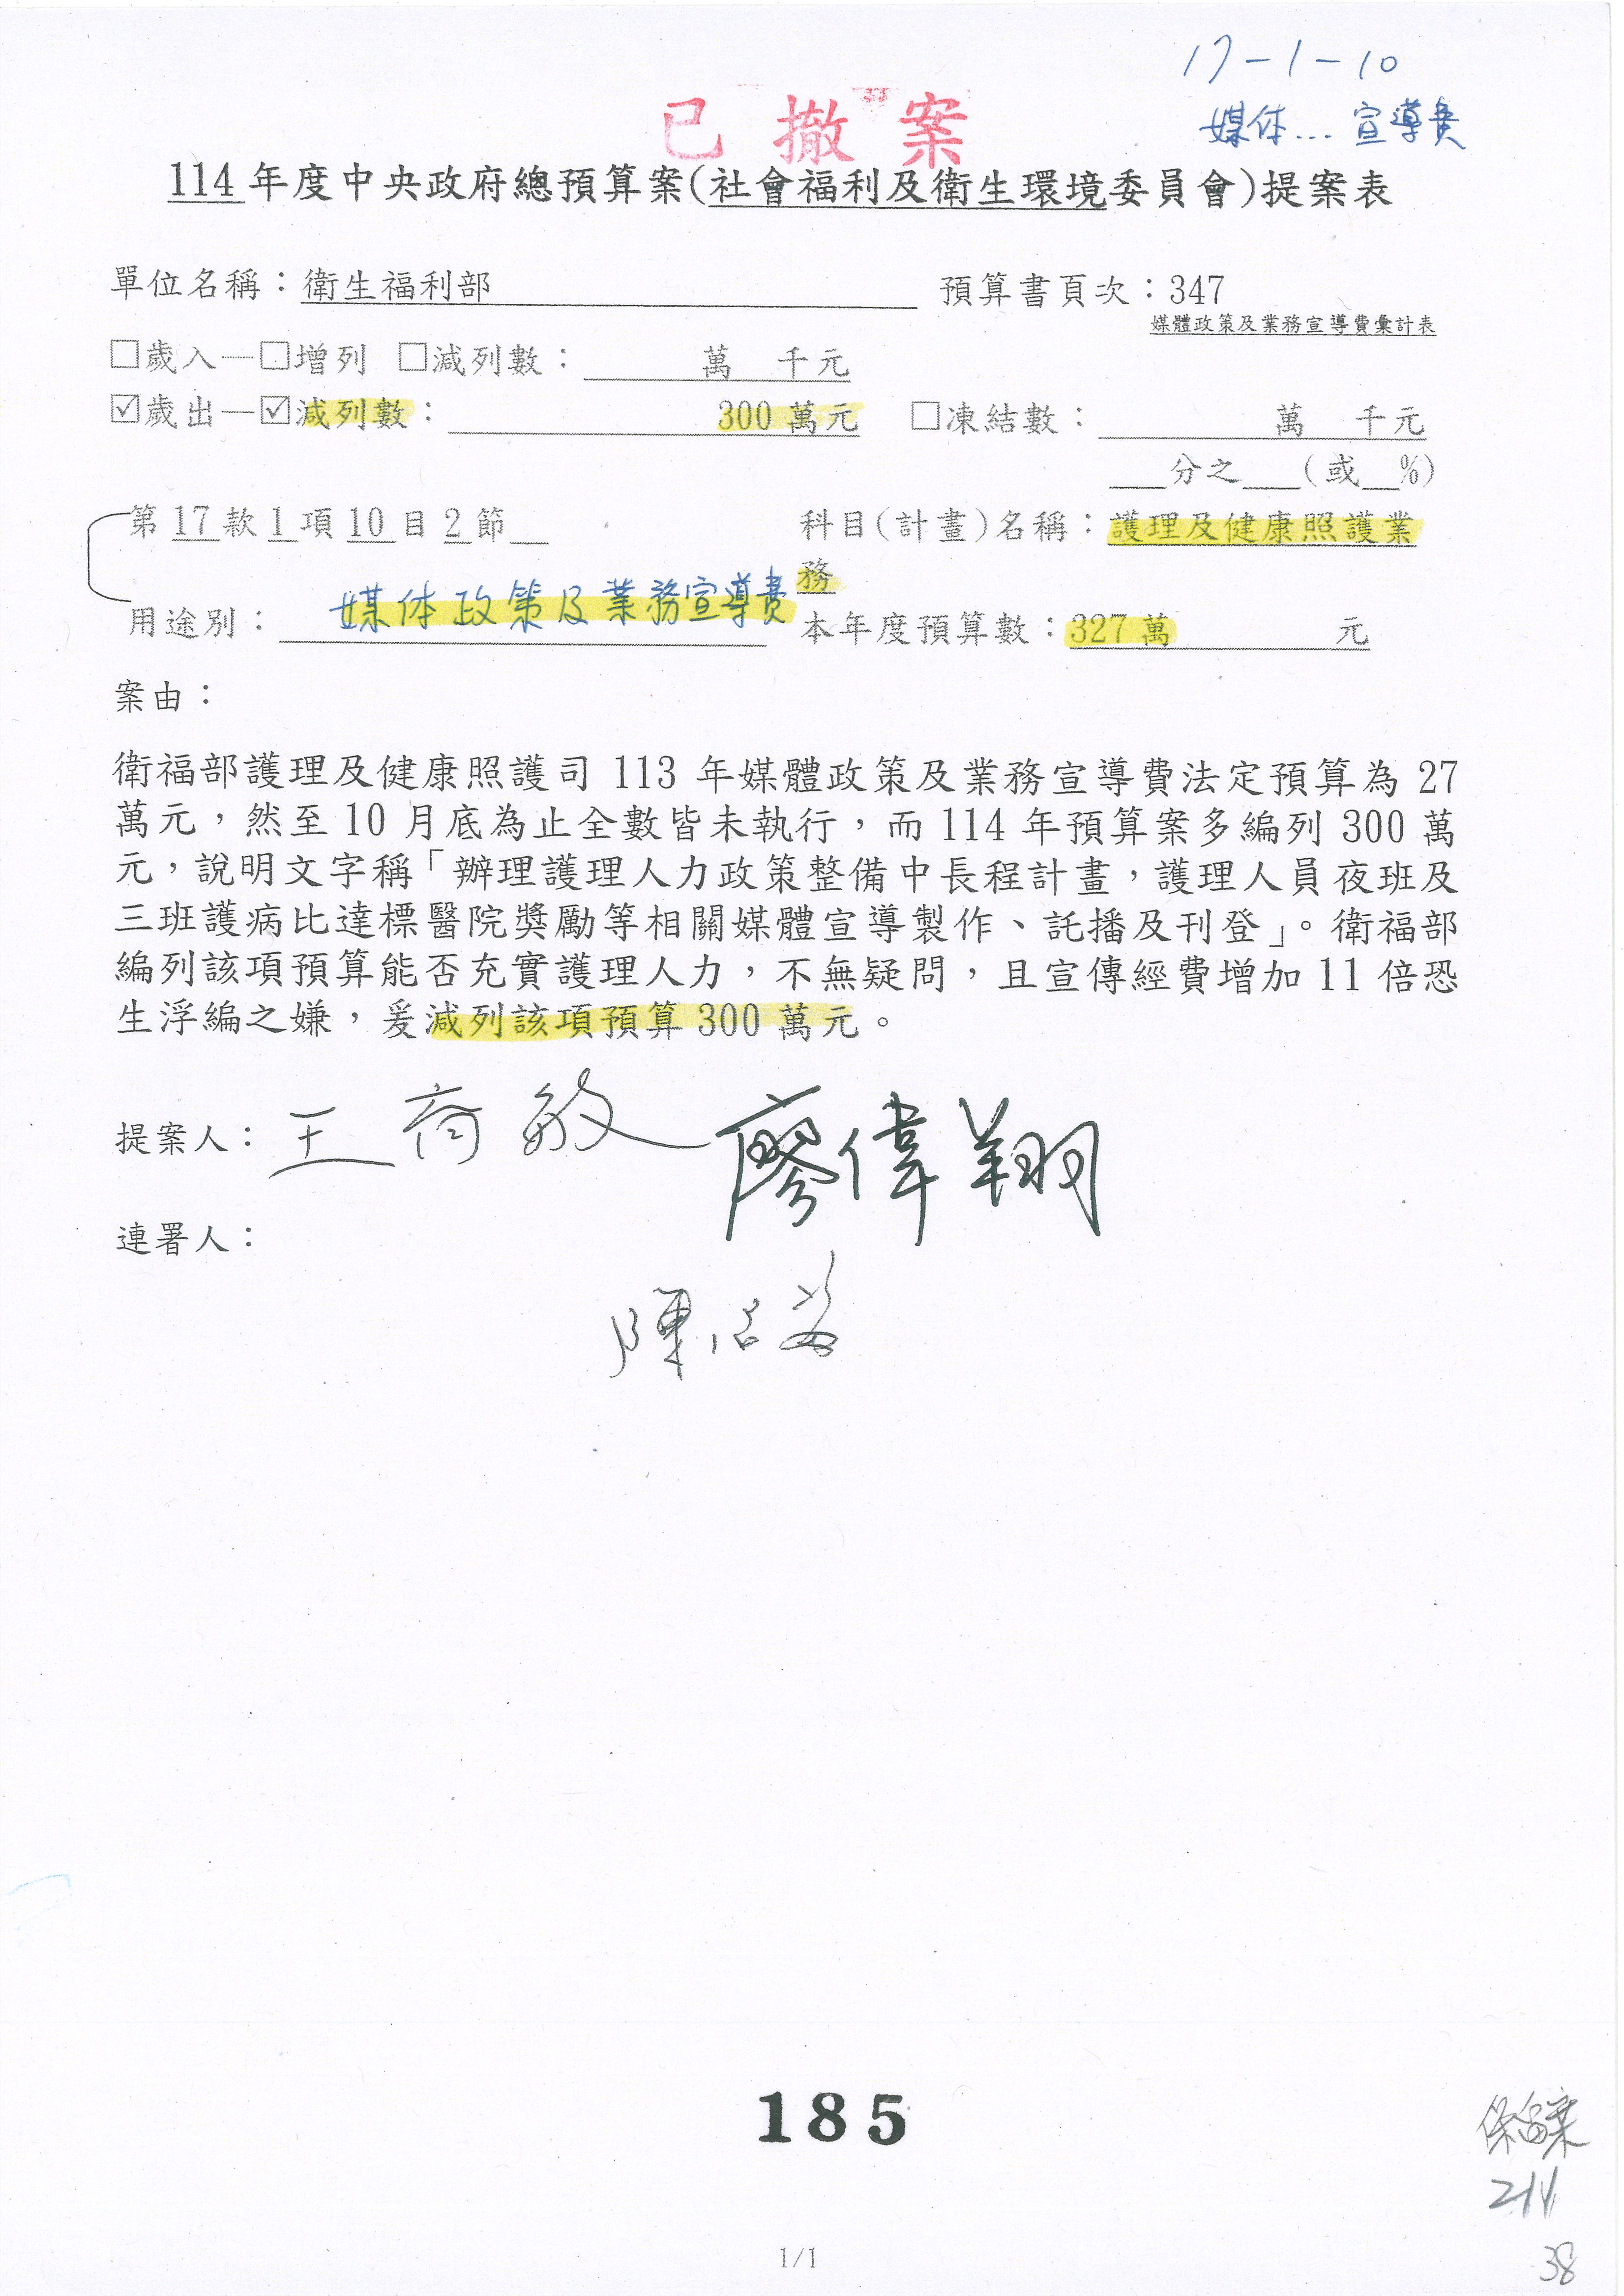 17-1-10
媒体...宣導費
已撤案
114年度中央政府總預算案(社會福利及衛生環境委員會)提案表
單位名稱：衛生福利部 預算書頁次：347
媒體政策及業務宣導費彙計表
□歲入—□增列 □減列數： 萬 千元
☑歲出—☑減列數： 300萬元 □凍結數： 萬 千元
___分之___(或__%)
第17款1項10目2節__ 科目(計畫)名稱：護理及健康照護業
務
用途別：媒体政策及業務宣導費 本年度預算數：327萬 元
案由：
衛福部護理及健康照護司 113 年媒體政策及業務宣導費法定預算為 27
萬元，然至 10 月底為止全數皆未執行，而 114 年預算案多編列 300 萬
元，說明文字稱「辦理護理人力政策整備中長程計畫，護理人員夜班及
三班護病比達標醫院獎勵等相關媒體宣導製作、託播及刊登」。衛福部
編列該項預算能否充實護理人力，不無疑問，且宣傳經費增加 11 倍恐
生浮編之嫌，爰減列該項預算 300 萬元。
提案人：王育敏 廖偉翔
連署人：
陳
185
保留案
211
1/1
38